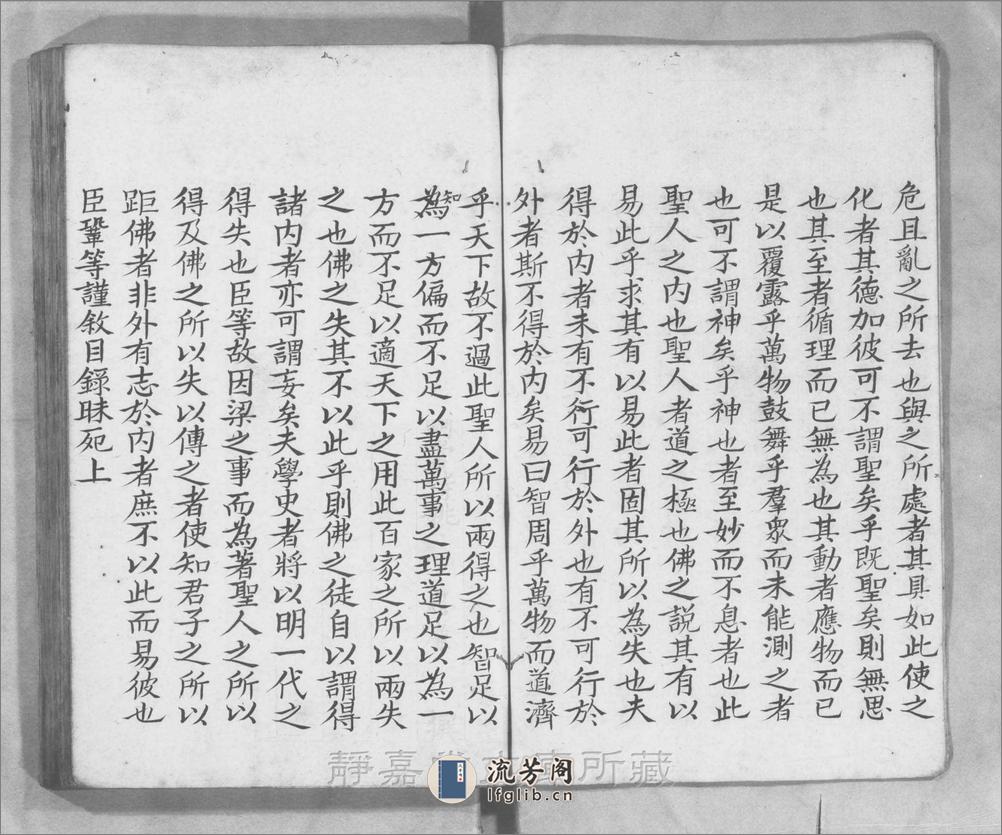 危且亂之所去也與之所處者其具如此使之
化者其德加彼可不謂聖矣乎既聖矣則無思
也其至者循理而已無為也其動者應物而已
是以覆露乎萬物鼓舞乎羣衆而未能測之者
也可不謂神矣乎神也者至妙而不息者也此
聖人之内也聖人者道之極也佛之説其有以
易此乎求其有以易此者固其所以為失也夫
得於内者未有不行可行於外也有不可行於
外者斯不得於内矣易曰智周乎萬物而道濟
乎天下故不過此聖人所以兩得之也智足以
知
為一方偏而不足以盡萬事之理道足以為一
方而不足以適天下之用此百家之所以兩失
之也佛之失其不以此乎則佛之徒自以謂得
諸内者亦可謂妄矣夫學史者將以明一代之
得失也臣等故因梁之事而為著聖人之所以
得及佛之所以失以傳之者使知君子之所以
距佛者非外有志於内者庶不以此而易彼也
臣鞏等謹敘目録昧死上
靜嘉堂文庫所藏
流芳阁
lfglib.cn